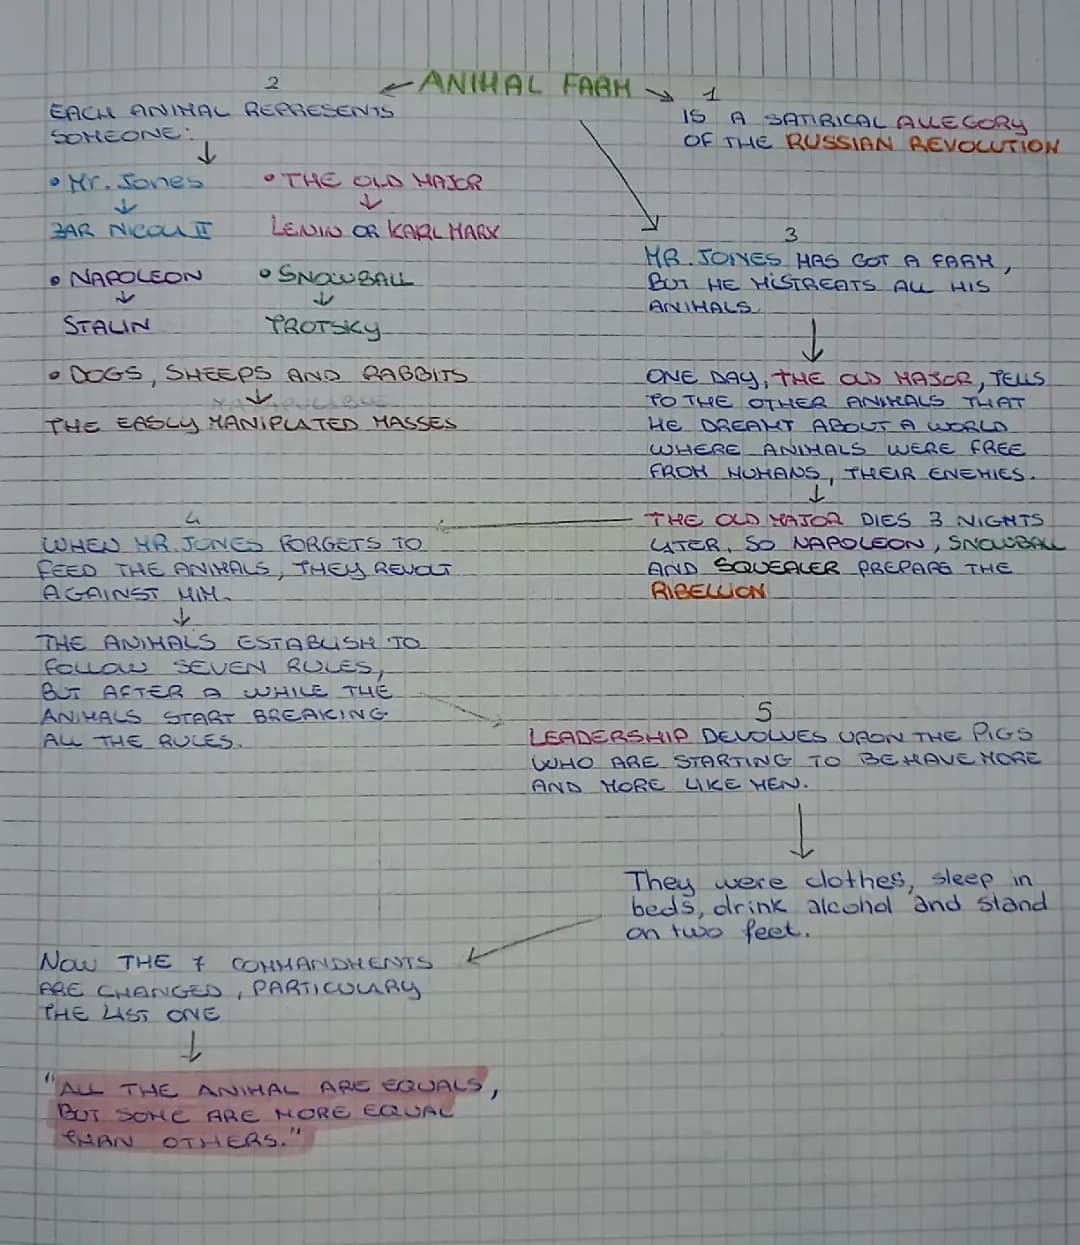 ANIMAL FARM
1
IS A SATIRICAL ALLEGORY
OF THE RUSSIAN REVOLUTION
2
EACH ANIMAL REPRESENTS
SOMEONE:
• Mr. Jones
ZAR NICOLL II
• THE OLD MAJOR
LENIN OR KARL MARX
• NAPOLEON
STALIN
• SNOWBALL
TROTSKY
• DOGS, SHEEPS AND RABBITS
THE EASLY MANIPLATED MASSES
3
MR. JONES HAS GOT A FARM,
BUT HE MISTREATS ALL HIS
ANIMALS.
ONE DAY, THE OLD MAJOR, TELLS
TO THE OTHER ANIMALS THAT
HE DREAMT ABOUT A WORLD
WHERE ANIMALS WERE FREE
FROM HUMANS, THEIR ENEMIES.
THE OLD MAJOR DIES 3 NIGHTS
LATER, SO NAPOLEON, SNOWBALL
AND SQUEALER PREPARE THE
RIBELLION
4
WHEN MR. JONES FORGETS TO
FEED THE ANIMALS, THEY REVOLT
AGAINST HIM.
THE ANIMALS ESTABLISH TO
FOLLOW SEVEN RULES,
BUT AFTER A WHILE THE
ANIMALS START BREAKING
ALL THE RULES.
5
LEADERSHIP DEVOLVES UPON THE PIGS
WHO ARE STARTING TO BEHAVE MORE
AND MORE LIKE MEN.
They were clothes, sleep in
beds, drink alcohol and stand
on two feet.
NOW THE 7 COMMANDMENTS
ARE CHANGED, PARTICULARY
THE LAST ONE
"ALL THE ANIMAL ARE EQUALS,
BUT SOME ARE MORE EQUAL
THAN OTHERS."